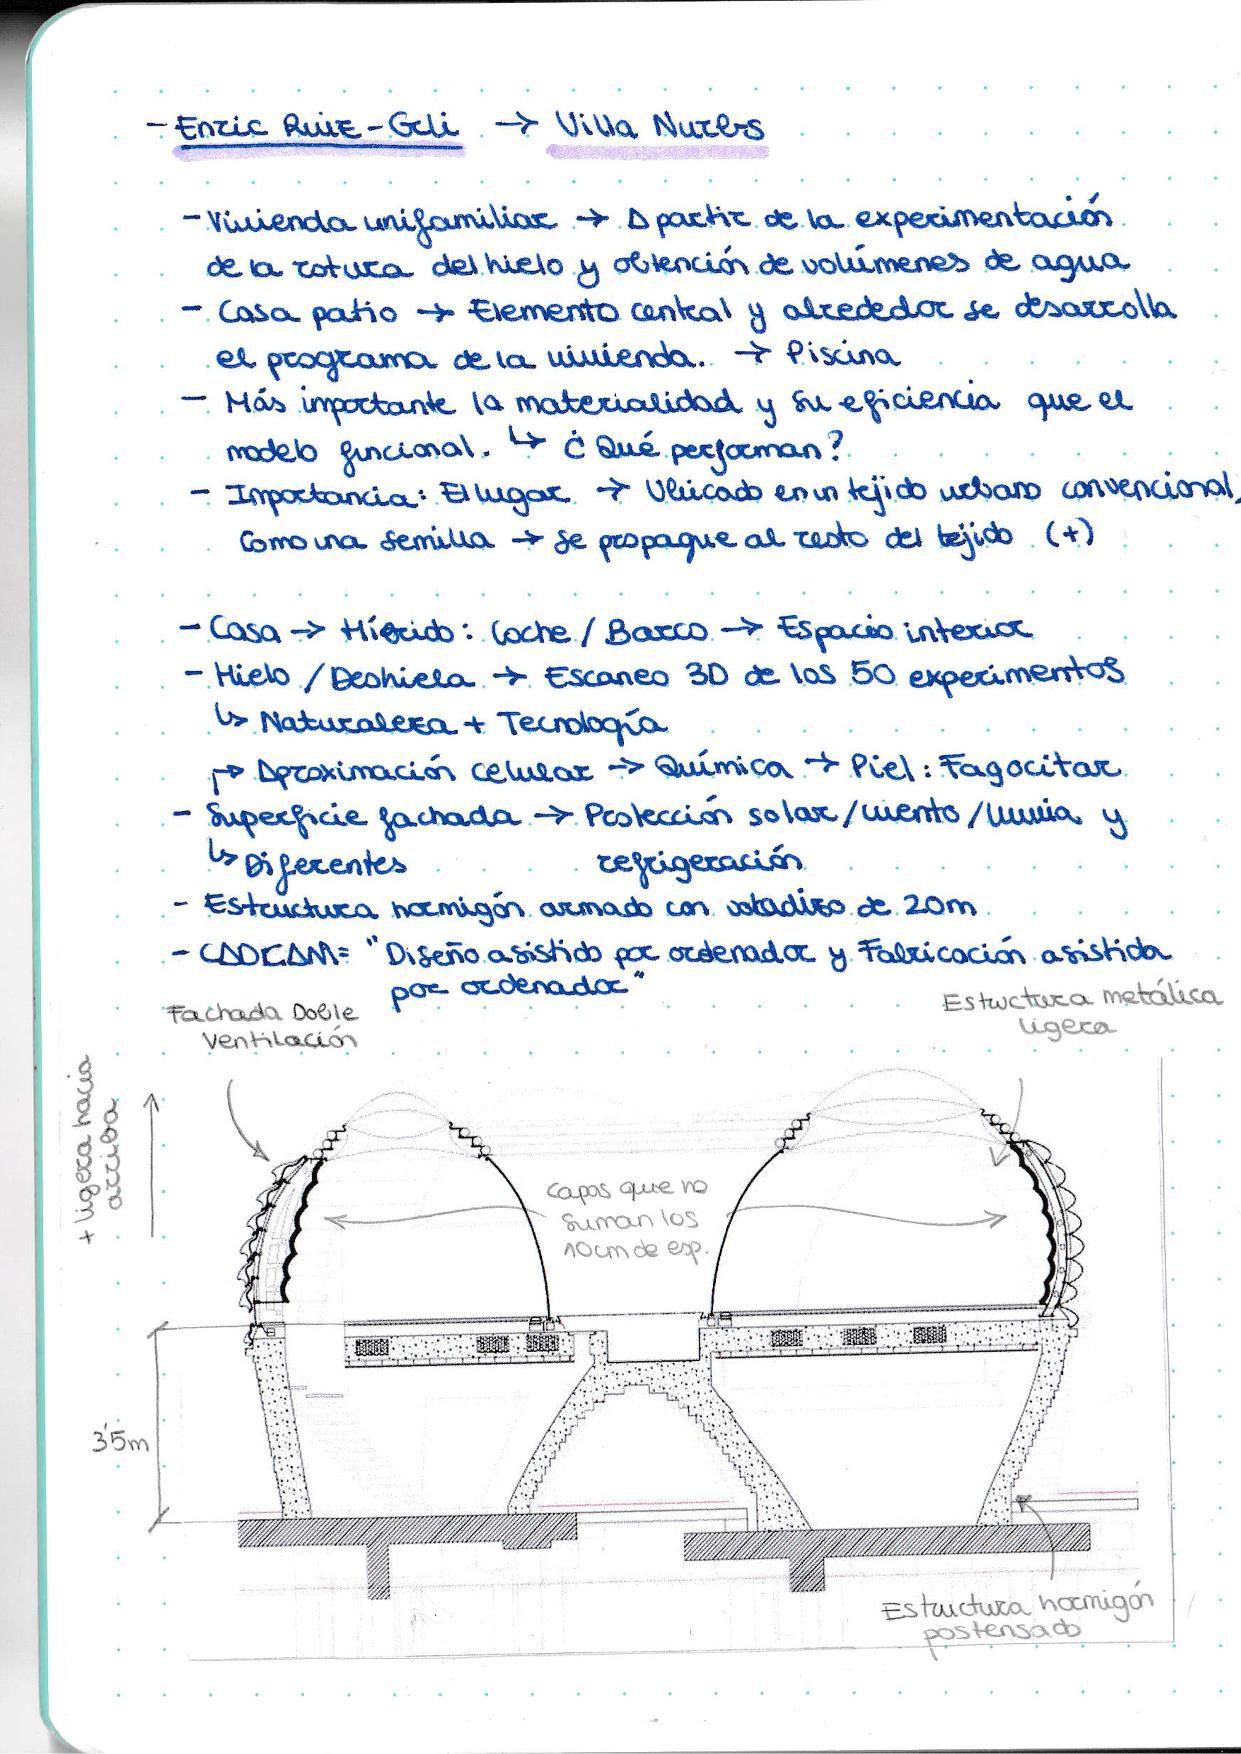 - Enric Ruiz-Geli → Villa Nurbs
- Vivienda unifamiliar → A partir de la experimentación
de la rotura del hielo y obtención de volúmenes de agua
- Casa patio → Elemento central y alrededor se desarrolla
el programa de la vivienda. → Piscina
- Más importante la materialidad y su eficiencia que el
modelo funcional. ↳ ¿Qué performan?
- Importancia: El lugar → Ubicado en un tejido urbano convencional,
Como una semilla → se propague al resto del tejido (+)
- Casa → Híbrido: Coche / Barco → Espacio interior
- Hielo / Deshiela → Escaneo 3D de los 50 experimentos
↳ Naturaleza + Tecnología
↱ Aproximación celular → Química → Piel: Fagocitar
- Superficie fachada → Protección solar/viento/lluvia y
↳ Diferentes refrigeración
- Estructura hormigón armado con voladizo de 20m
- CADCAM= "Diseño asistido por ordenador y Fabricación asistida
por ordenador"
Fachada Doble
Ventilación
Estructura metálica
ligera
+ ligera hacia
arriba
capas que no
suman los
10cm de esp.
3'5m
Estructura hormigón
postensado